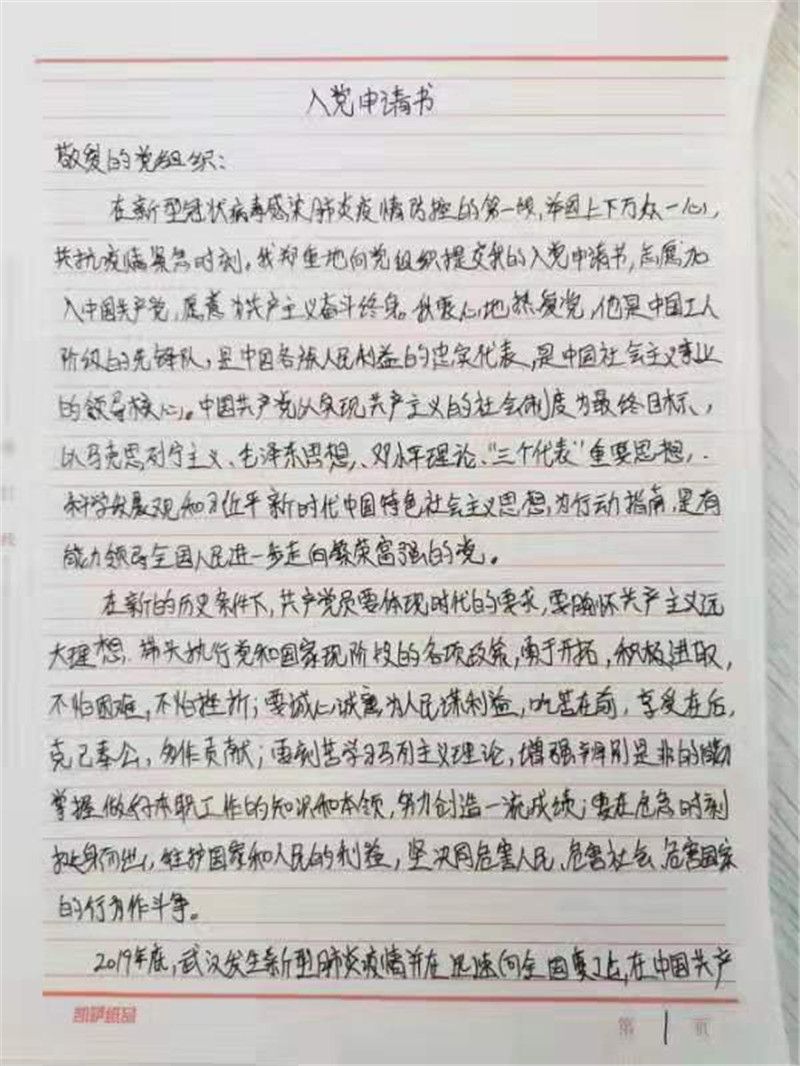 入党申请书
敬爱的党组织：
在新型冠状病毒感染肺炎疫情防控的第一线，举国上下万众一心，
共抗疫情紧急时刻，我郑重地向党组织提交我的入党申请书，志愿加
入中国共产党，愿意为共产主义奋斗终身。我衷心地热爱党，他是中国工人
阶级的先锋队，是中国各族人民利益的忠实代表，是中国社会主义事业
的领导核心。中国共产党以实现共产主义的社会制度为最终目标，
以马克思列宁主义、毛泽东思想、邓小平理论、“三个代表”重要思想，
科学发展观和习近平新时代中国特色社会主义思想，为行动指南，是有
能力领导全国人民进一步走向繁荣富强的党。
在新的历史条件下，共产党员要体现时代的要求，要胸怀共产主义远
大理想，带头执行党和国家现阶段的各项政策，勇于开拓，积极进取，
不怕困难，不怕挫折；要诚心诚意为人民谋利益，吃苦在前，享受在后，
克己奉公，多作贡献；要刻苦学习马列主义理论，增强辨别是非的能力
掌握做好本职工作的知识和本领，努力创造一流成绩；要在危急时刻
挺身而出，维护国家和人民的利益，坚决同危害人民、危害社会、危害国家
的行为作斗争。
2019年底，武汉发生新型肺炎疫情并在迅速向全国蔓延，在中国共产
凯萨纸品
第 1 页